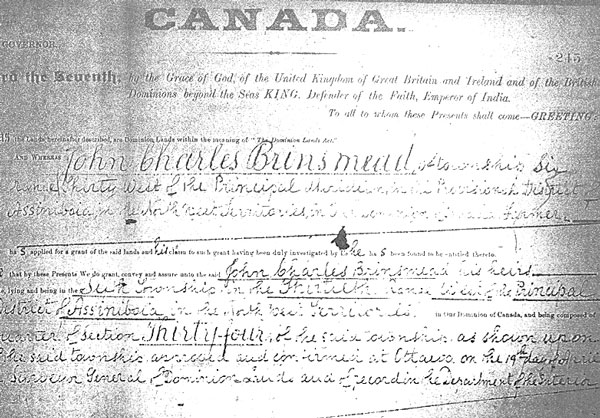 CANADA.
GOVERNOR.
245
rd the Seventh, by the Grace of God, of the United Kingdom of Great Britain and Ireland and of the British
Dominions beyond the Seas KING, Defender of the Faith, Emperor of India.
To all to whom these Presents shall come—GREETING:
AS the Lands hereinafter described, are Dominion Lands within the meaning of "The Dominion Lands Act."
AND WHEREAS John Charles Brinsmead, of township Six
range Thirty West of the Principal Meridian, in the Provisional District
Assiniboia, in the North West Territories, in Our Dominion of Canada Farmer
ha s applied for a grant of the said lands and his claim to such grant having been duly investigated by Us he ha s been found to be entitled thereto.
that by these Presents We do grant, convey and assure unto the said John Charles Brinsmead his heirs
e, lying and being in the Sixth Township in the Thirtieth Range West of the Principal
District of Assiniboia in the North West Territories in Our Dominion of Canada, and being composed of
quarter of section Thirty four, of the said township, as shown upon
the said township approved and confirmed at Ottawa, on the 19th day of
Surveyor General of Dominion Lands and of record in the Department of the Interior